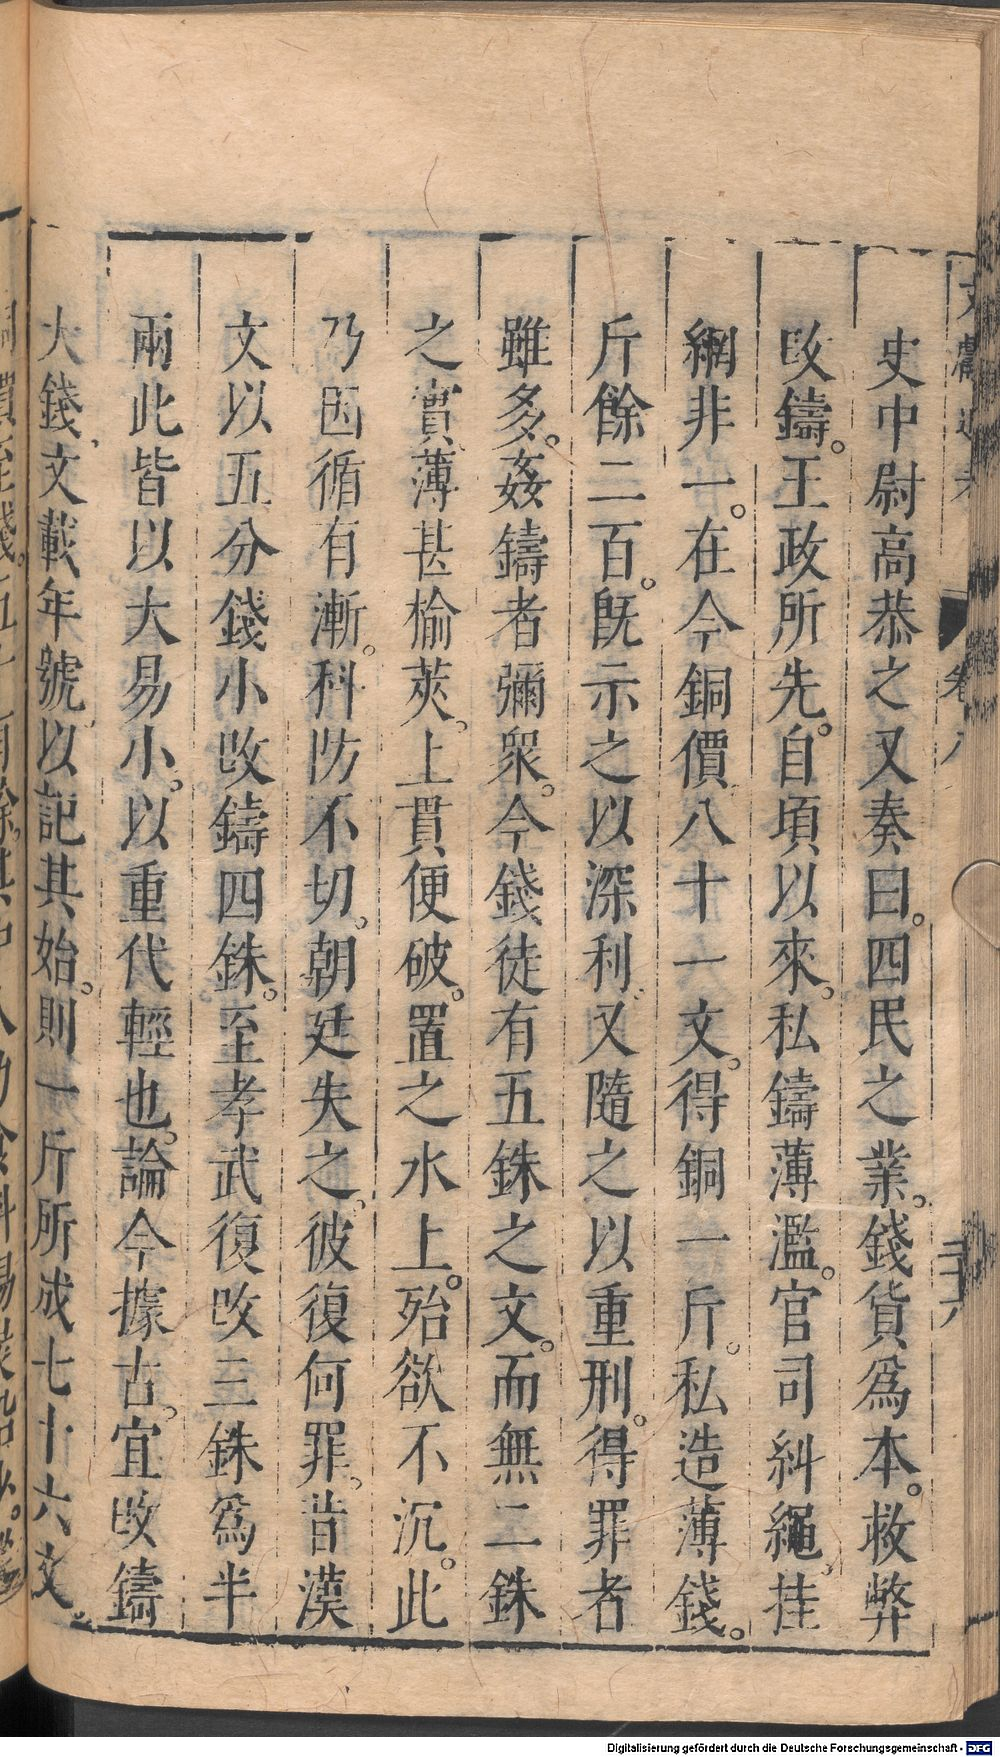 史中尉高恭之又奏曰。四民之業。錢貨爲本。救弊
改鑄。王政所先。自頃以來。私鑄薄濫。官司糾繩。挂
網非一。在今銅價八十一文。得銅一斤。私造薄錢。
斤餘二百。旣示之以深利。又隨之以重刑。得罪者
雖多。姦鑄者彌衆。今錢徒有五銖之文。而無二銖
之實。薄甚榆莢。上貫便破。置之水上。殆欲不沉。此
乃因循有漸。科防不切。朝廷失之。彼復何罪。昔漢
文以五分錢小改鑄四銖。至孝武復改三銖爲半
兩此皆以大易小。以重代輕也。論今據古。宜改鑄
大錢。文載年號。以記其始。則一斤所成七十六文。
卷八
Digitalisierung gefördert durch die Deutsche Forschungsgemeinschaft - DFG